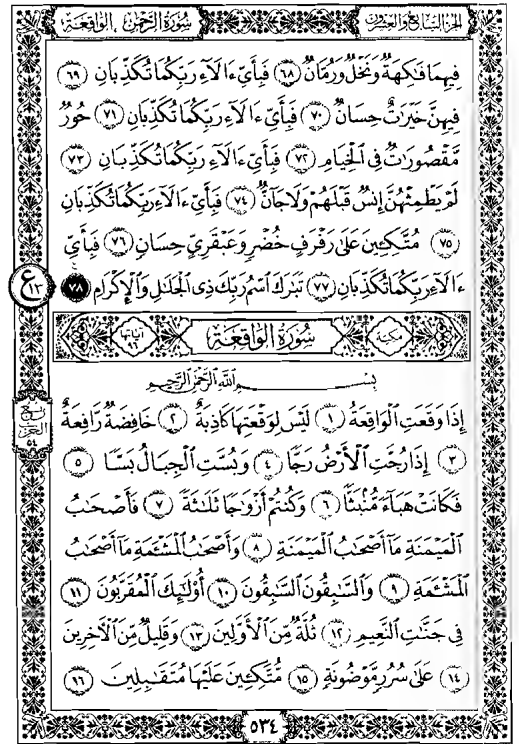 سُورَةُ الرَّحْمٰن ، الوَاقِعَة
الجزء السابع والعشرون
فِيهِمَا فَٰكِهَةٌ وَنَخْلٌ وَرُمَّانٌ ٦٨ فَبِأَيِّ ءَالَآءِ رَبِّكُمَا تُكَذِّبَانِ ٦٩
فِيهِنَّ خَيْرَٰتٌ حِسَانٌ ٧٠ فَبِأَيِّ ءَالَآءِ رَبِّكُمَا تُكَذِّبَانِ ٧١ حُورٌ
مَّقْصُورَٰتٌ فِى ٱلْخِيَامِ ٧٢ فَبِأَيِّ ءَالَآءِ رَبِّكُمَا تُكَذِّبَانِ ٧٣
لَمْ يَطْمِثْهُنَّ إِنسٌ قَبْلَهُمْ وَلَا جَآنٌّ ٧٤ فَبِأَيِّ ءَالَآءِ رَبِّكُمَا تُكَذِّبَانِ
٧٥ مُتَّكِـِٔينَ عَلَىٰ رَفْرَفٍ خُضْرٍ وَعَبْقَرِيٍّ حِسَانٍ ٧٦ فَبِأَيِّ
ءَالَآءِ رَبِّكُمَا تُكَذِّبَانِ ٧٧ تَبَٰرَكَ ٱسْمُ رَبِّكَ ذِى ٱلْجَلَٰلِ وَٱلْإِكْرَامِ ٧٨
ع ١٣
مكية سُورَةُ الْوَاقِعَةِ آياتها
بِسْمِ ٱللَّهِ ٱلرَّحْمَٰنِ ٱلرَّحِيمِ
إِذَا وَقَعَتِ ٱلْوَاقِعَةُ ١ لَيْسَ لِوَقْعَتِهَا كَاذِبَةٌ ٢ خَافِضَةٌ رَّافِعَةٌ
ربع الحزب ٥٤
٣ إِذَا رُجَّتِ ٱلْأَرْضُ رَجًّا ٤ وَبُسَّتِ ٱلْجِبَالُ بَسًّا ٥
فَكَانَتْ هَبَآءً مُّنۢبَثًّا ٦ وَكُنتُمْ أَزْوَٰجًا ثَلَٰثَةً ٧ فَأَصْحَٰبُ
ٱلْمَيْمَنَةِ مَآ أَصْحَٰبُ ٱلْمَيْمَنَةِ ٨ وَأَصْحَٰبُ ٱلْمَشْـَٔمَةِ مَآ أَصْحَٰبُ
ٱلْمَشْـَٔمَةِ ٩ وَٱلسَّٰبِقُونَ ٱلسَّٰبِقُونَ ١٠ أُو۟لَٰٓئِكَ ٱلْمُقَرَّبُونَ ١١
فِى جَنَّٰتِ ٱلنَّعِيمِ ١٢ ثُلَّةٌ مِّنَ ٱلْأَوَّلِينَ ١٣ وَقَلِيلٌ مِّنَ ٱلْءَاخِرِينَ
١٤ عَلَىٰ سُرُرٍ مَّوْضُونَةٍ ١٥ مُّتَّكِـِٔينَ عَلَيْهَا مُتَقَٰبِلِينَ ١٦
٥٣٤